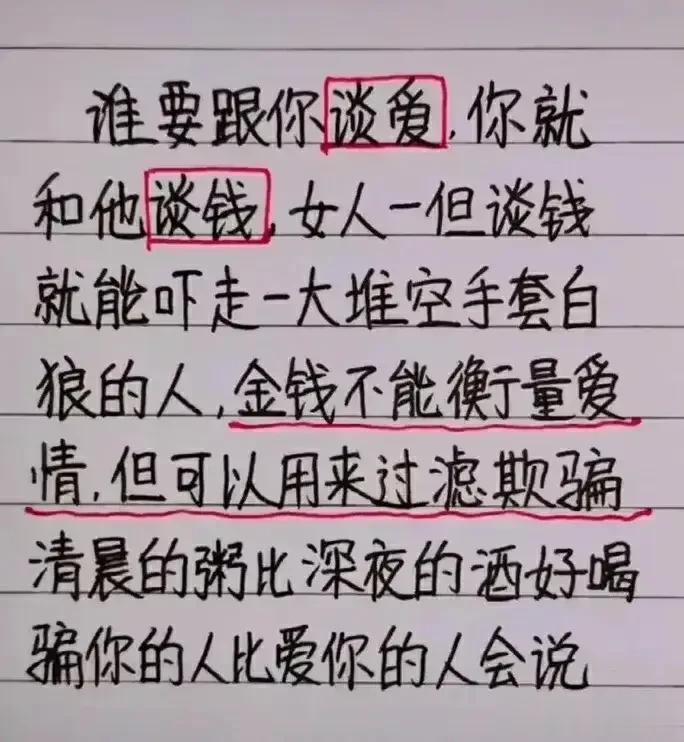 谁要跟你谈爱,你就
和他谈钱,女人一但谈钱
就能吓走一大堆空手套白
狼的人,金钱不能衡量爱
情,但可以用来过滤欺骗
清晨的粥比深夜的酒好喝
骗你的人比爱你的人会说